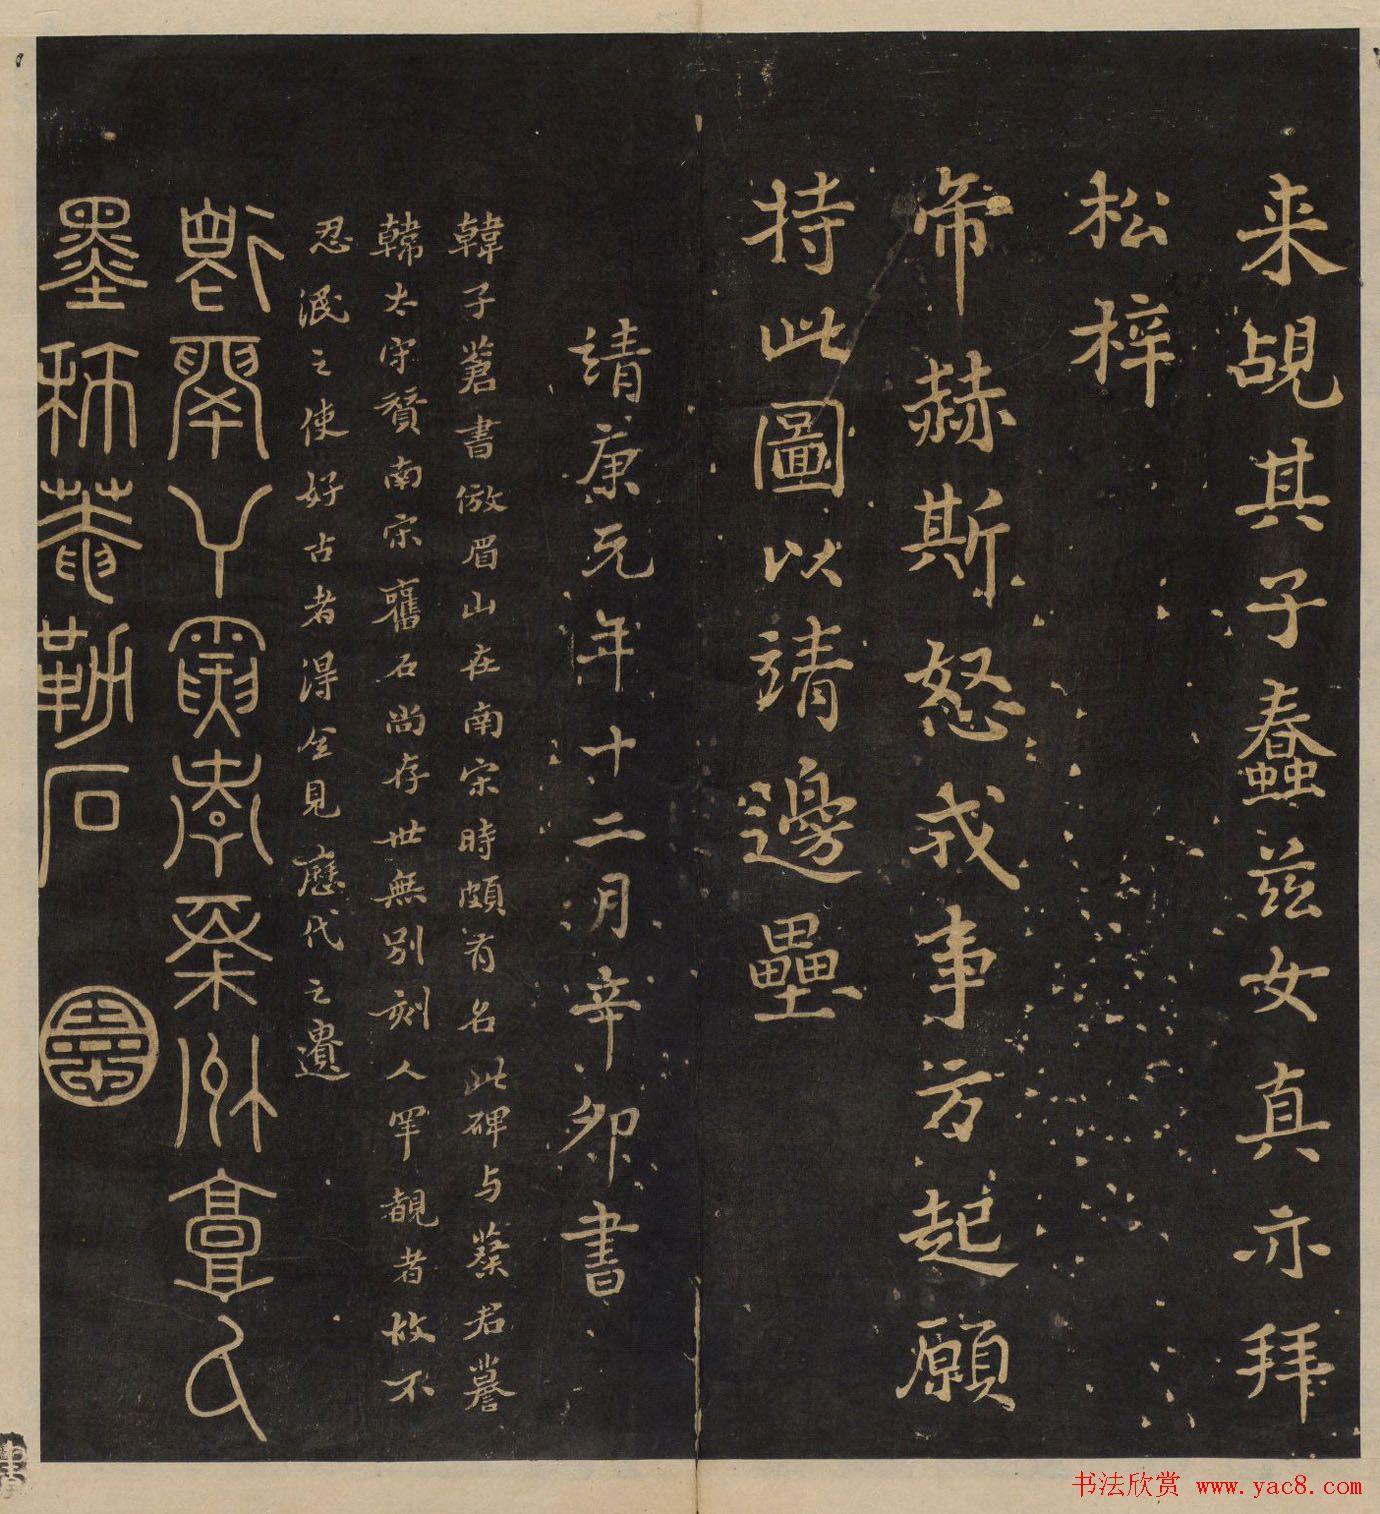 来觇其子蠢兹女真亦拜
松梓
帝赫斯怒我事方起願
持此圖以靖邊壘
靖康元年十二月辛卯書
韓子蒼書倣眉山在南宋時頗有名此碑与蔡君謩
韓太守贊南宋舊石尚存世無別刻人罕覩者故不
忍泯之使好古者得全見歷代之遺
墨秫菴勒石
书法欣赏 www.yac8.com